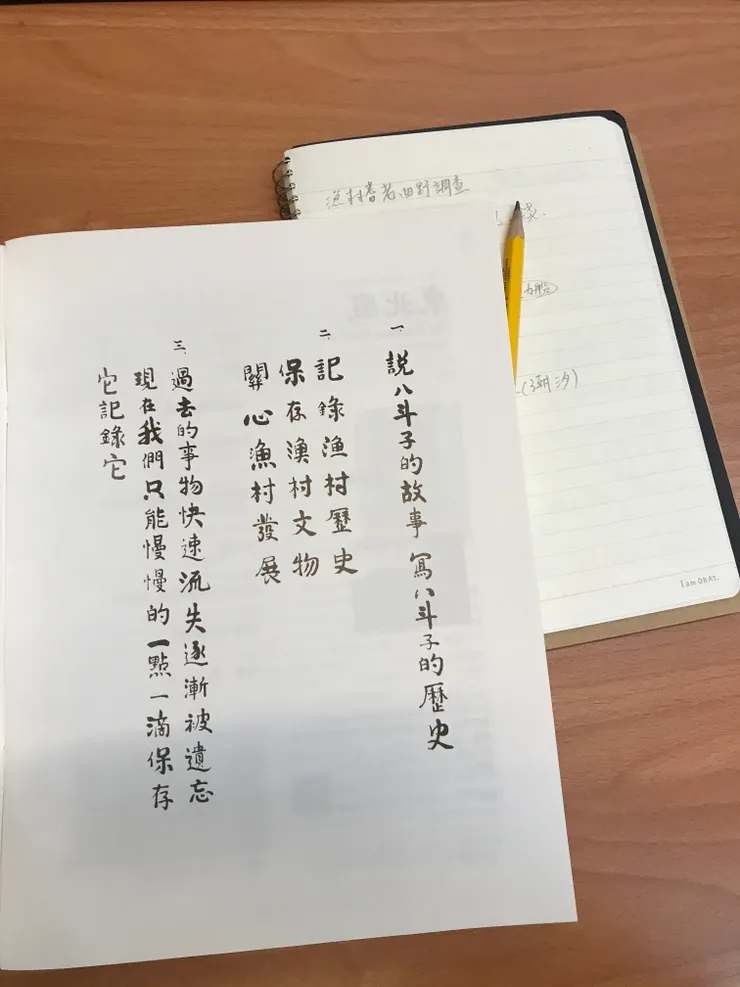 一、說八斗子的故事 寫八斗子的歷史
二、記錄漁村歷史
保存漁村文物
關心漁村發展
三、過去的事物快速流失逐漸被遺忘
現在我們只能慢慢的一點一滴保存
它記錄它
漁村耆老田野調查
錢.
(潮汐)
I am OKAY.